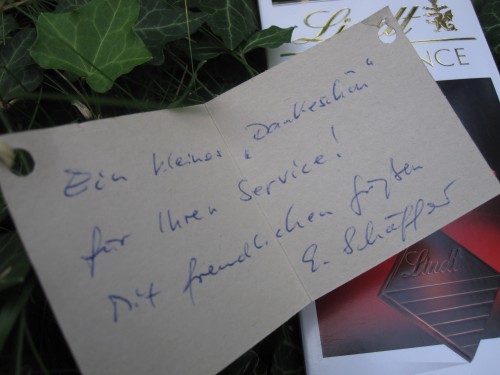 Lindt
LLENCE
Ein kleines „Dankeschön“
für Ihren Service!
Mit freundlichen Grüßen
E. Schäffer
Lindt